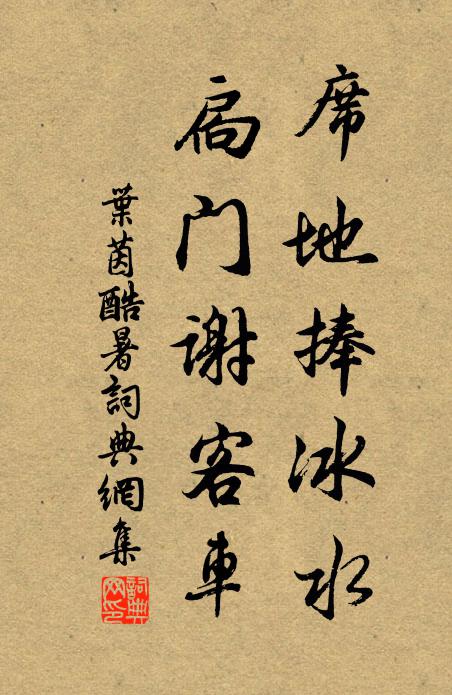 席地捧冰水
扃門謝客車
葉茵酷暑詞典網集
詞典网印